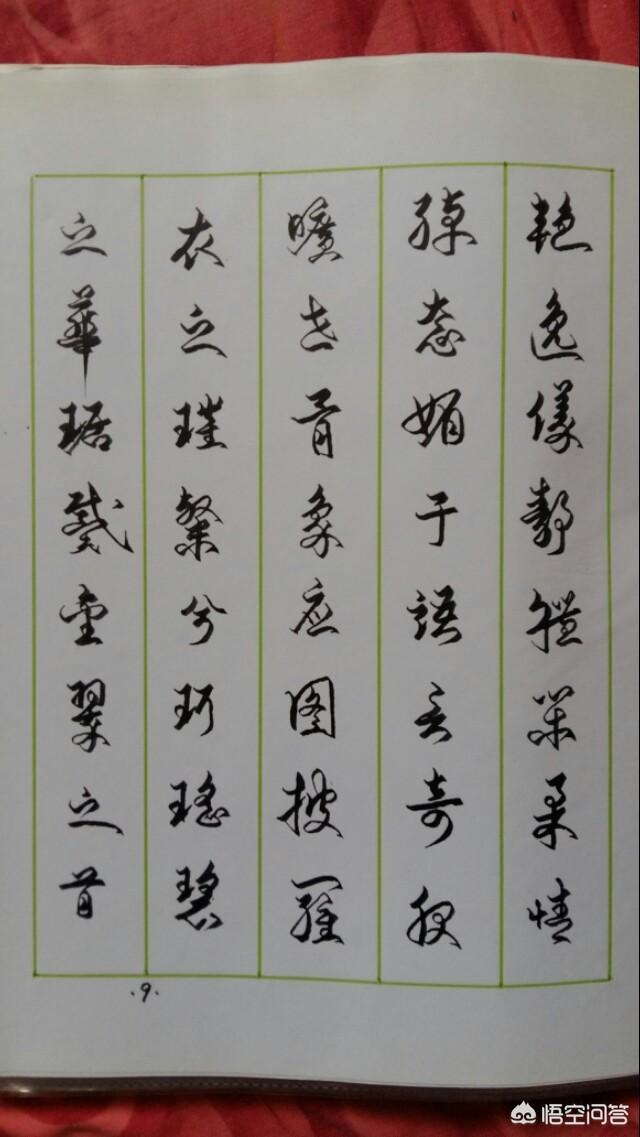 艳逸儀静體闲柔情
绰态媚于語言奇服
曠世骨象应图披羅
衣之璀粲兮珥瑶碧
之華琚戴金翠之首
·9·
悟空问答